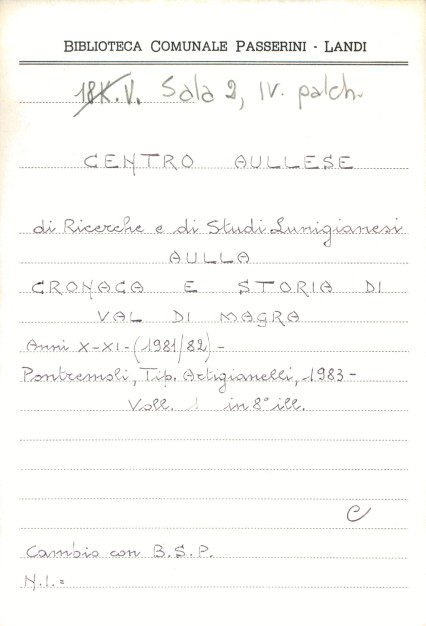 BIBLIOTECA COMUNALE PASSERINI - LANDI
18K.V. Sala 2, IV. palch.
CENTRO AULLESE
di Ricerche e di Studi Lunigianesi
AULLA
CRONACA E STORIA DI
VAL DI MAGRA
Anni X-XI-(1981/82)-
Pontremoli, Tip. Artigianelli, 1983-
Voll. 1 in 8° ill.
C
Cambio con B.S.P.
N.I.=